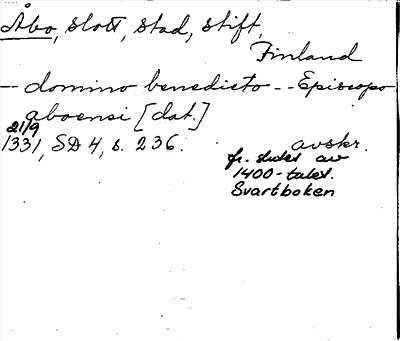 Åbo, slott, stad, stift,
Finland
-- domino benedicto -- Episcopo
aboensi [dat.]
21/9
1331, SD 4, s. 236. avskr.
fr. slutet av
1400-talet.
Svartboken